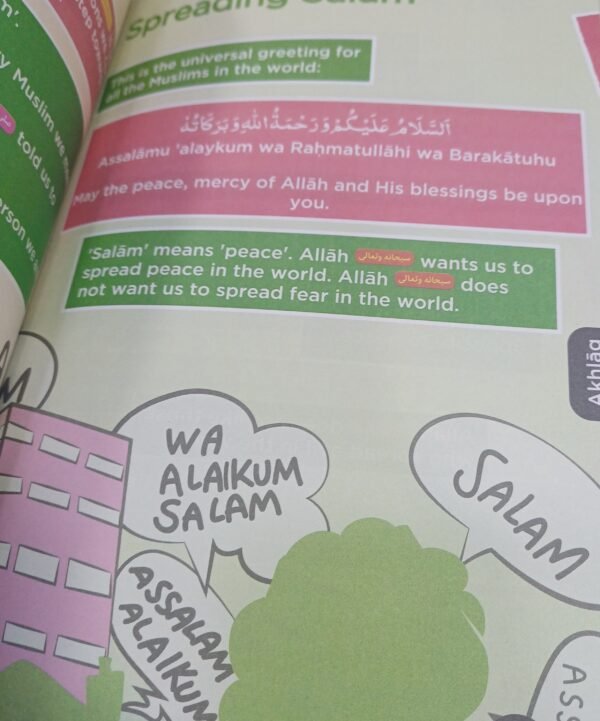 Spreading Salām
This is the universal greeting for
all the Muslims in the world:
اَلسَّلَامُ عَلَيْكُمْ وَرَحْمَةُ اللّٰهِ وَبَرَكَاتُهُ
Assalāmu 'alaykum wa Raḥmatullāhi wa Barakātuhu
May the peace, mercy of Allāh and His blessings be upon
you.
'Salām' means 'peace'. Allāh سبحانه وتعالى wants us to
spread peace in the world. Allāh سبحانه وتعالى does
not want us to spread fear in the world.
Akhlāq
WA
ALAIKUM
SALAM
SALAM
ASSALAM
ALAIKUM
ASS
Muslim we
told us to
erson we